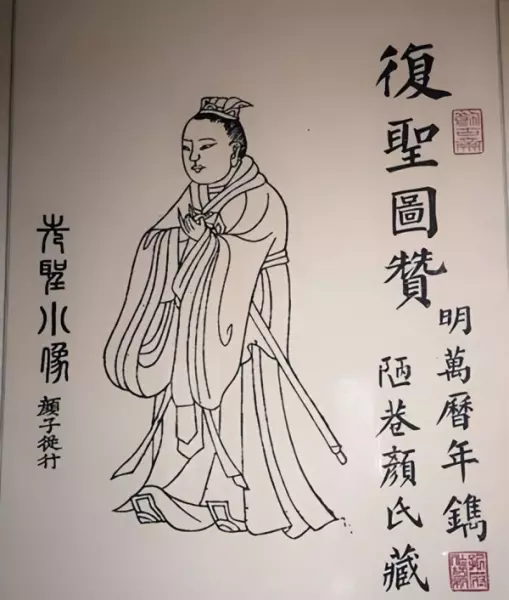 復聖圖贊
明萬曆年鐫
陋巷顏氏藏
先聖小像
顏子從行